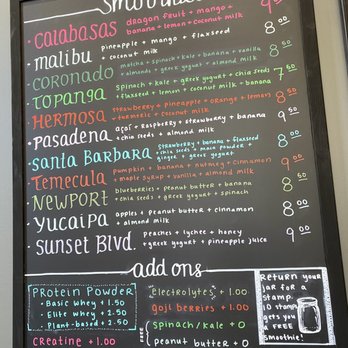 Smoothies
• Calabasas dragon fruit + mango + banana + lemon + coconut milk 9
• malibu pineapple + mango + flaxseed + coconut milk 8 00
• Coronado matcha + spinach + kale + banana + vanilla + almonds + greek yogurt + almond milk 8 50
• Topanga spinach + kale + greek yogurt + chia seeds + flaxseed + lemon + coconut milk + banana 7 50
• Hermosa strawberry + pineapple + orange + lemon + turmeric + coconut milk 8 50
• Pasadena açaí + raspberry + strawberry + banana + chia seeds + almond milk 9 00
• Santa Barbara strawberry + banana + flaxseed + chia seeds + maca powder + ginger + greek yogurt 8 50
• Temecula pumpkin + banana + nutmeg + cinnamon + maple syrup + vanilla + almond milk 9 00
• Newport blueberries + peanut butter + banana + chia seeds + greek yogurt + spinach 8 50
• Yucaipa apples + peanut butter + cinnamon + almond milk 8 00
• Sunset Blvd. peaches + lychee + honey + greek yogurt + pineapple juice 9 00
add ons
Protein Powder
• Basic whey + 1.50
• Elite whey + 2.50
• Plant-based + 2.50
Creatine + 1.00
electrolytes + 1.00
goji berries + 1.00
spinach/kale + 0
peanut butter + 0
Return your jar for a stamp.
10 stamps gets you a FREE smoothie!